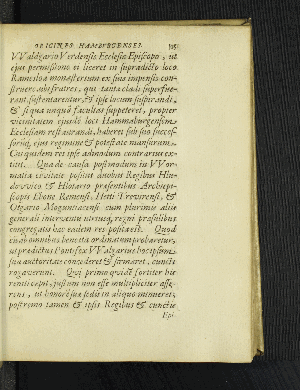 ORIGINES HAMBURGENSES. 195
VValdgario Verdensis Ecclesiæ Episcopo, ut
ejus permissione ei liceret in supradicto loco
Ramesloa monasterium ex suis impensis con-
struere: ubi fratres, qui tanta cladi superfue-
rant, sustentarentur, & ipse locum
& si qua unquam facultas suppeteret, propter
vicinitatem ejusdē loci Hammaburgensem
Ecclesiam restaurandi, haberet sub suo succes-
sorúmq; ejus regimine & potestate mansurum.
Cui quidem rei ipse admodum contrarius exti-
tit. Qua de causa postmodum in VVor-
matia civitate positus duobus Regibus Hlu-
dovvico & Hlotario præsentibus Archiepi-
scopis Ebone Remensi, Hetti Trevirensi, &
Otgario Moguntiacensi cum plurimo alio
generali interventu utriusq; regni præsulibus
congregatis hæc eadem res posita est. Quod
cū ab omnibus benè ità ordinatum probaretur,
ut prædictus Pontifex VValgarius hoc ipsum
sua auctoritate concederet & firmaret, cuncti
rogaverunt. Qui primo quidē fortiter hæ-
renti cœpit, justum non esse multipliciter asse-
rens, ut honor suæ sedis in aliquo minueret,
postremo tamen & ipsis Regibus & cunctis
Epi-